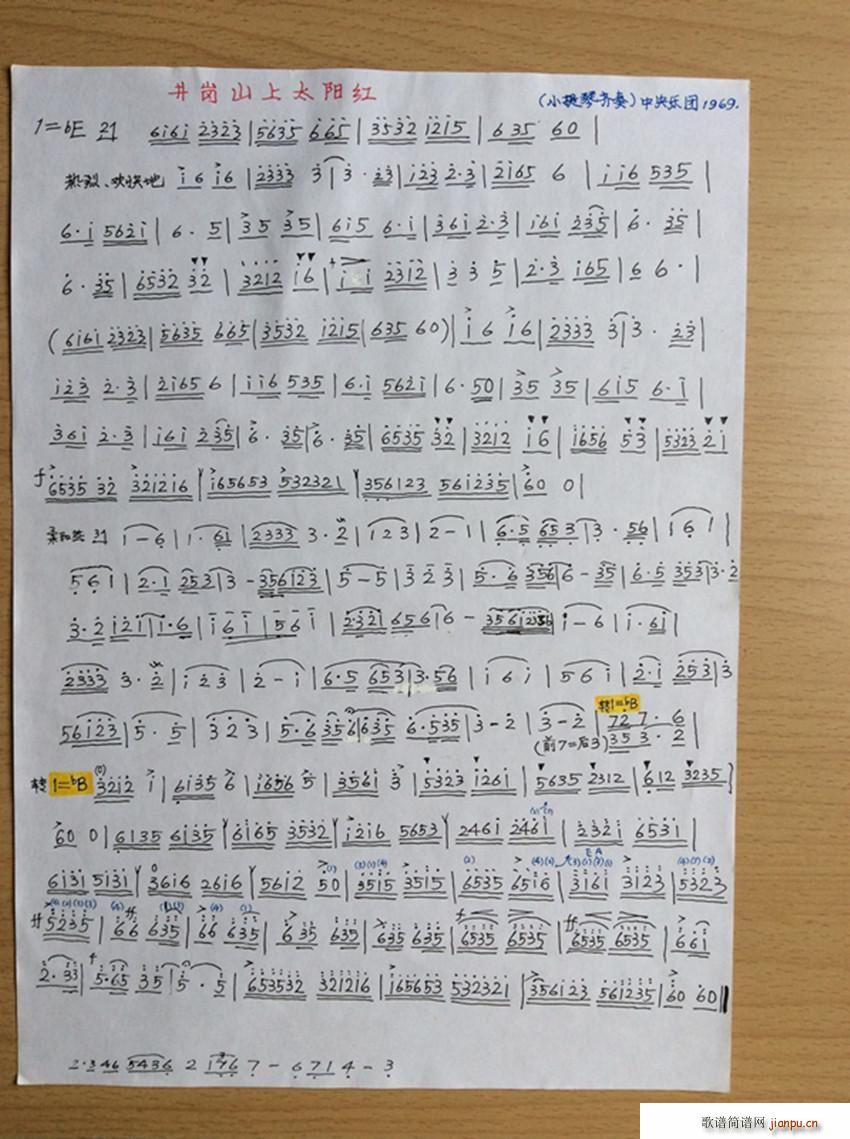 井岗山上太阳红
(小提琴齐奏)中央乐团1969.
1=bE 6161 2323|5635 665|3532 1215|635 60|
热烈、欢快地 16 16|2333 3|3· 23|123 2·3|2165 6|116 535|
6·1 5621|6· 5|35 35|615 6·1|361 2·3|161 235|6· 35|
6· 35|6532 32|3212 16|1 1 2312|3 3 5|2·3 165|6 6·|
(6161 2323|5635 665|3532 1215|635 60)|16 16|2333 3|3· 23|
123 2·3|2165 6|116 535|6·1 5621|6· 50|35 35|615 6·1|
361 2·3|161 235|6· 35|6· 35|6535 32|3212 16|1656 53|5323 21
f 6535 32 321216|165653 532321|356123 561235|60 0|
1-6|1·61|2333 3·2|123|2-1|6·5 653|3·56|161|
561|2·1 253|3-356123|5-5|323|5·6 356|6-35|6·5 353|3·2
3·2 121|1·6|161|561|2·321 656|6-|1-6|1·61|
2333 3·2|123|2-1|6·5 653|3·56|161|561|2·1 253|3
转1=bB
56123|5·5|323|5·6 356|635 6·535|3-2|3-2|727·6
(前7=后3) 353·2
转 1=bB 3212 1|6135 6|1656 5|3561 3|5323 1261|5635 2312|612 3235|
60 0|6135 6135|6165 3532|1216 5653|2461 2461|2321 6531|
6131 5131|3616 2616|5612 50|3515 3515|6535 6516|3161 3123|5323
5235|66 635|66 635|635 635|635 635|6535 6535|6535 6535|661|
2·33|5·65 35|5·5|653532 321216|165653 532321|356123 561235|60 60‖
2·346 5436 2 176 7- 6714-3
歌谱简谱网 jianpu.cn